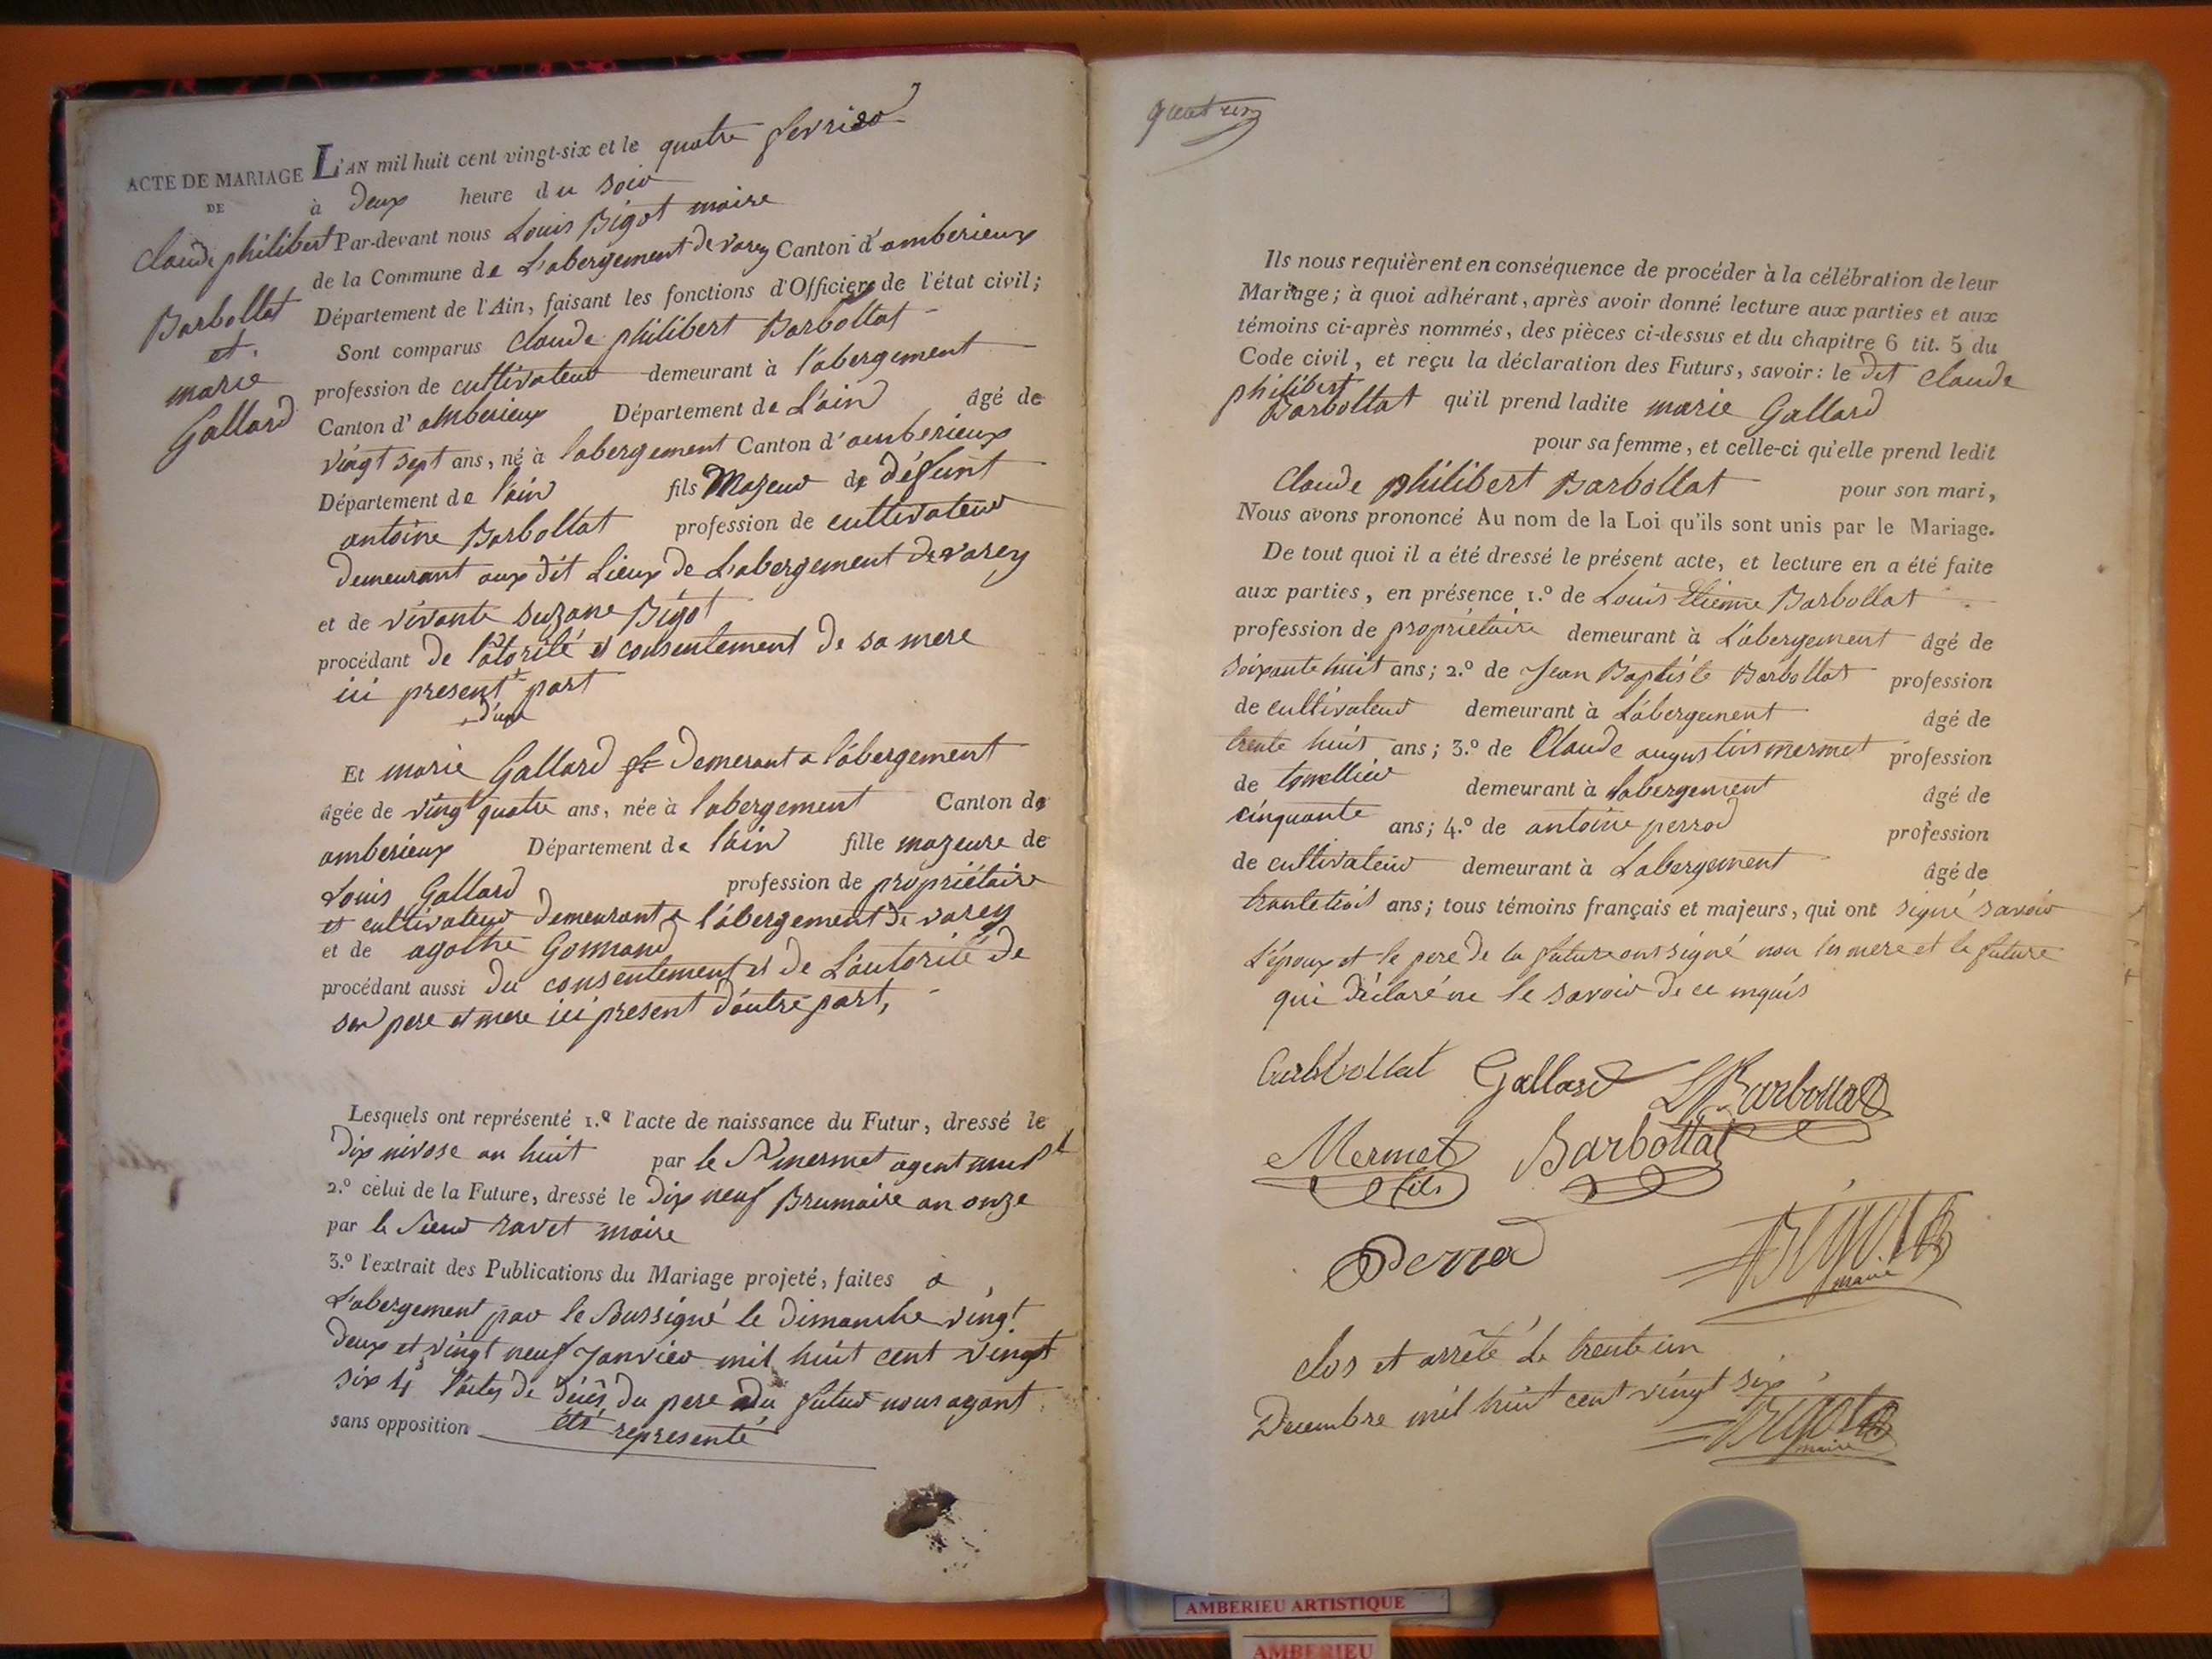 ACTE DE MARIAGE
DE
Claude philibert
Barbollat
et
marie
Gallard
L'AN mil huit cent vingt-six et le quatre fevrier
à deux heure du soir
Par-devant nous Louis Bigot maire
de la Commune de L'abergement de varey Canton d'amberieux
Département de l'Ain, faisant les fonctions d'Officier de l'état civil;
Sont comparus Claude philibert Barbollat
profession de cultivateur demeurant à l'abergement
Canton d'amberieux Département de L'ain âgé de
vingt sept ans, né à l'abergement Canton d'amberieux
Département de l'ain fils Majeur de défunt
antoine Barbollat profession de cultivateur
demeurant aux dit Lieux de L'abergement de varey
et de vivante suzane Bigot
procédant de l'atorité et consentement de sa mere
ici present part
d'une
Et marie Gallard demerant a l'abergement
âgée de vingt quatre ans, née à l'abergement Canton de
amberieux Département de l'ain fille mazeure de
Louis Gallard profession de propriétaire
et cultivateur demeurant a l'abergement de varey
et de agathe Gonnand
procédant aussi du consentement et de L'autorité de
ses pere et mere ici present d'autre part,
Lesquels ont représenté 1.º l'acte de naissance du Futur, dressé le
dix nivose an huit par le Sr mermet agent mupl
2.º celui de la Future, dressé le dix neuf Brumaire an onze
par le Sieur ravet maire
3.º l'extrait des Publications du Mariage projeté, faites a
L'abergement par le Soussigné le dimanche vingt
deux et vingt neuf Janvier mil huit cent vingt
six 4º l'actes de décès du pere du futur nous ayant
sans opposition été representé
quatre
Ils nous requièrent en conséquence de procéder à la célébration de leur
Mariage; à quoi adhérant, après avoir donné lecture aux parties et aux
témoins ci-après nommés, des pièces ci-dessus et du chapitre 6 tit. 5 du
Code civil, et reçu la déclaration des Futurs, savoir: le dit Claude
philibert
Barbollat qu'il prend ladite marie Gallard
pour sa femme, et celle-ci qu'elle prend ledit
Claude philibert Barbollat pour son mari,
Nous avons prononcé Au nom de la Loi qu'ils sont unis par le Mariage.
De tout quoi il a été dressé le présent acte, et lecture en a été faite
aux parties, en présence 1.º de Louis Etienne Barbollat
profession de propriétaire demeurant à L'abergement âgé de
soixante huit ans; 2.º de Jean Baptiste Barbollat profession
de cultivateur demeurant à L'abergement âgé de
trente huit ans; 3.º de Claude augustin mermet profession
de tonellier demeurant à l'abergement âgé de
cinquante ans; 4.º de antoine perrod profession
de cultivateur demeurant à L'abergement âgé de
trante trois ans; tous témoins français et majeurs, qui ont signé savoir
L'époux et le pere de la future ont signé non les mere et la future
qui déclaré ne le savoir de ce enquis
Barbollat Gallard L Barbollat
Mermet Barbollat
fils
Perrod Bigot
maire
clos et arrêté le trente un
Decembre mil huit cent vingt six
Bigot
maire
AMBERIEU ARTISTIQUE
AMBERIEU